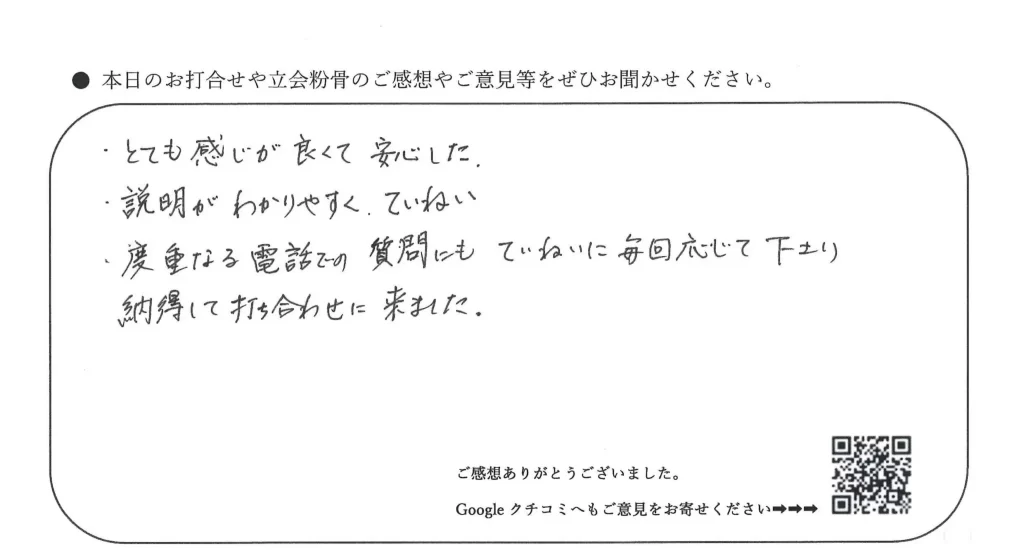 ● 本日のお打合せや立会粉骨のご感想やご意見等をぜひお聞かせください。
・とても感じが良くて安心した.
・説明がわかりやすく.ていねい
・度重なる電話での質問にもていねいに毎回応じて下さり
納得して打ち合わせに来ました。
ご感想ありがとうございました。
Google クチコミへもご意見をお寄せください➡➡➡